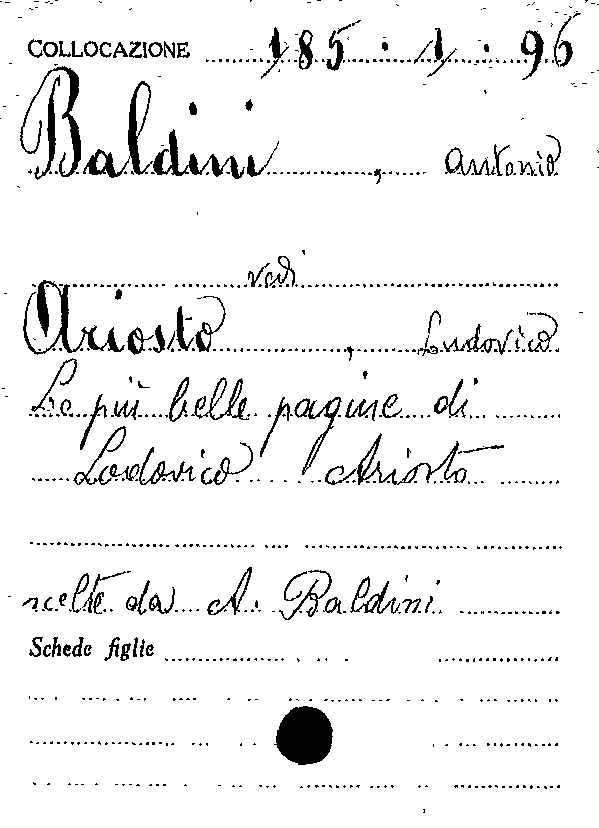 COLLOCAZIONE 185 . 1 . 96
Baldini , Antonio
vedi
Ariosto , Ludovico
Le più belle pagine di
Lodovico Ariosto
scelte da A. Baldini
Schede figlie